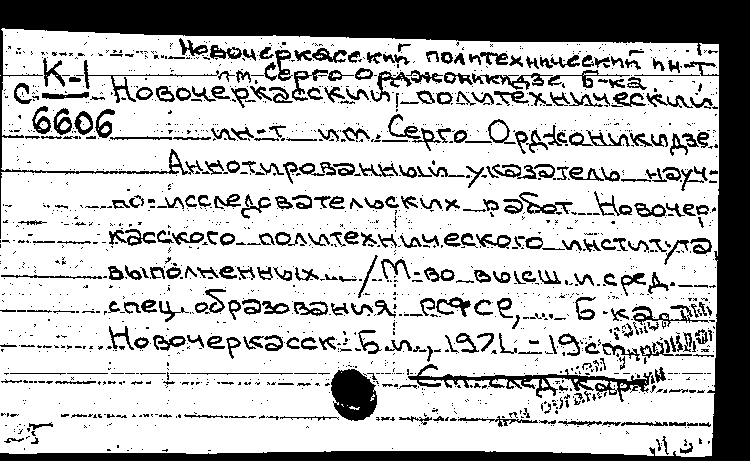 Новочеркасский политехнический ин-т
им. Серго Орджоникидзе. Б-ка
с К-1
6606
Новочеркасский политехнический
ин-т им. Серго Орджоникидзе.
Аннотированный указатель науч-
но-исследовательских работ Новочер-
касского политехнического института,
выполненных... /М-во высш. и сред.
спец. образования РСФСР, ... Б-ка. –
Новочеркасск: Б.и., 1971. – 19 см
См. след. карт.